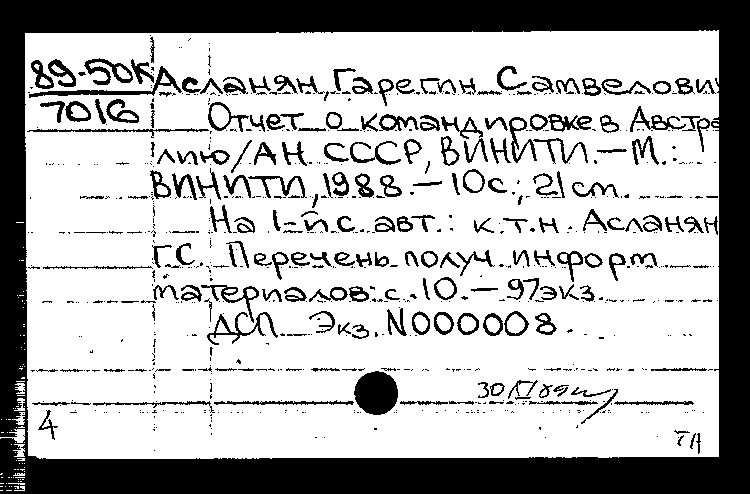 89-50К Асланян, Гарегин Самвелович
7016 Отчет о командировке в Австра
лию/АН СССР, ВИНИТИ.—М.:
ВИНИТИ, 1988.—10с.; 21см.
На 1-й с. авт.: к.т.н. Асланян
Г.С. Перечень получ. информ
материалов: с. 10.— 97экз.
ДСП Экз. N000008.
30/XI89
4
ТА